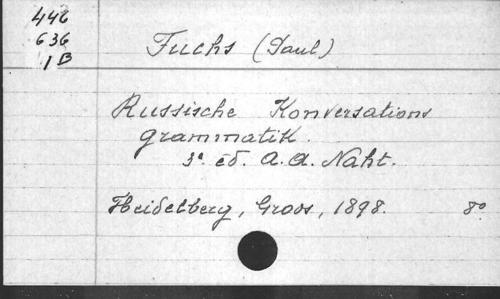 446
636
1B
Fuchs (Paul)
Russische Konversations
grammatik.
3ª ed. A. A. Naht.
Heidelberg, Groos, 1898. 8º